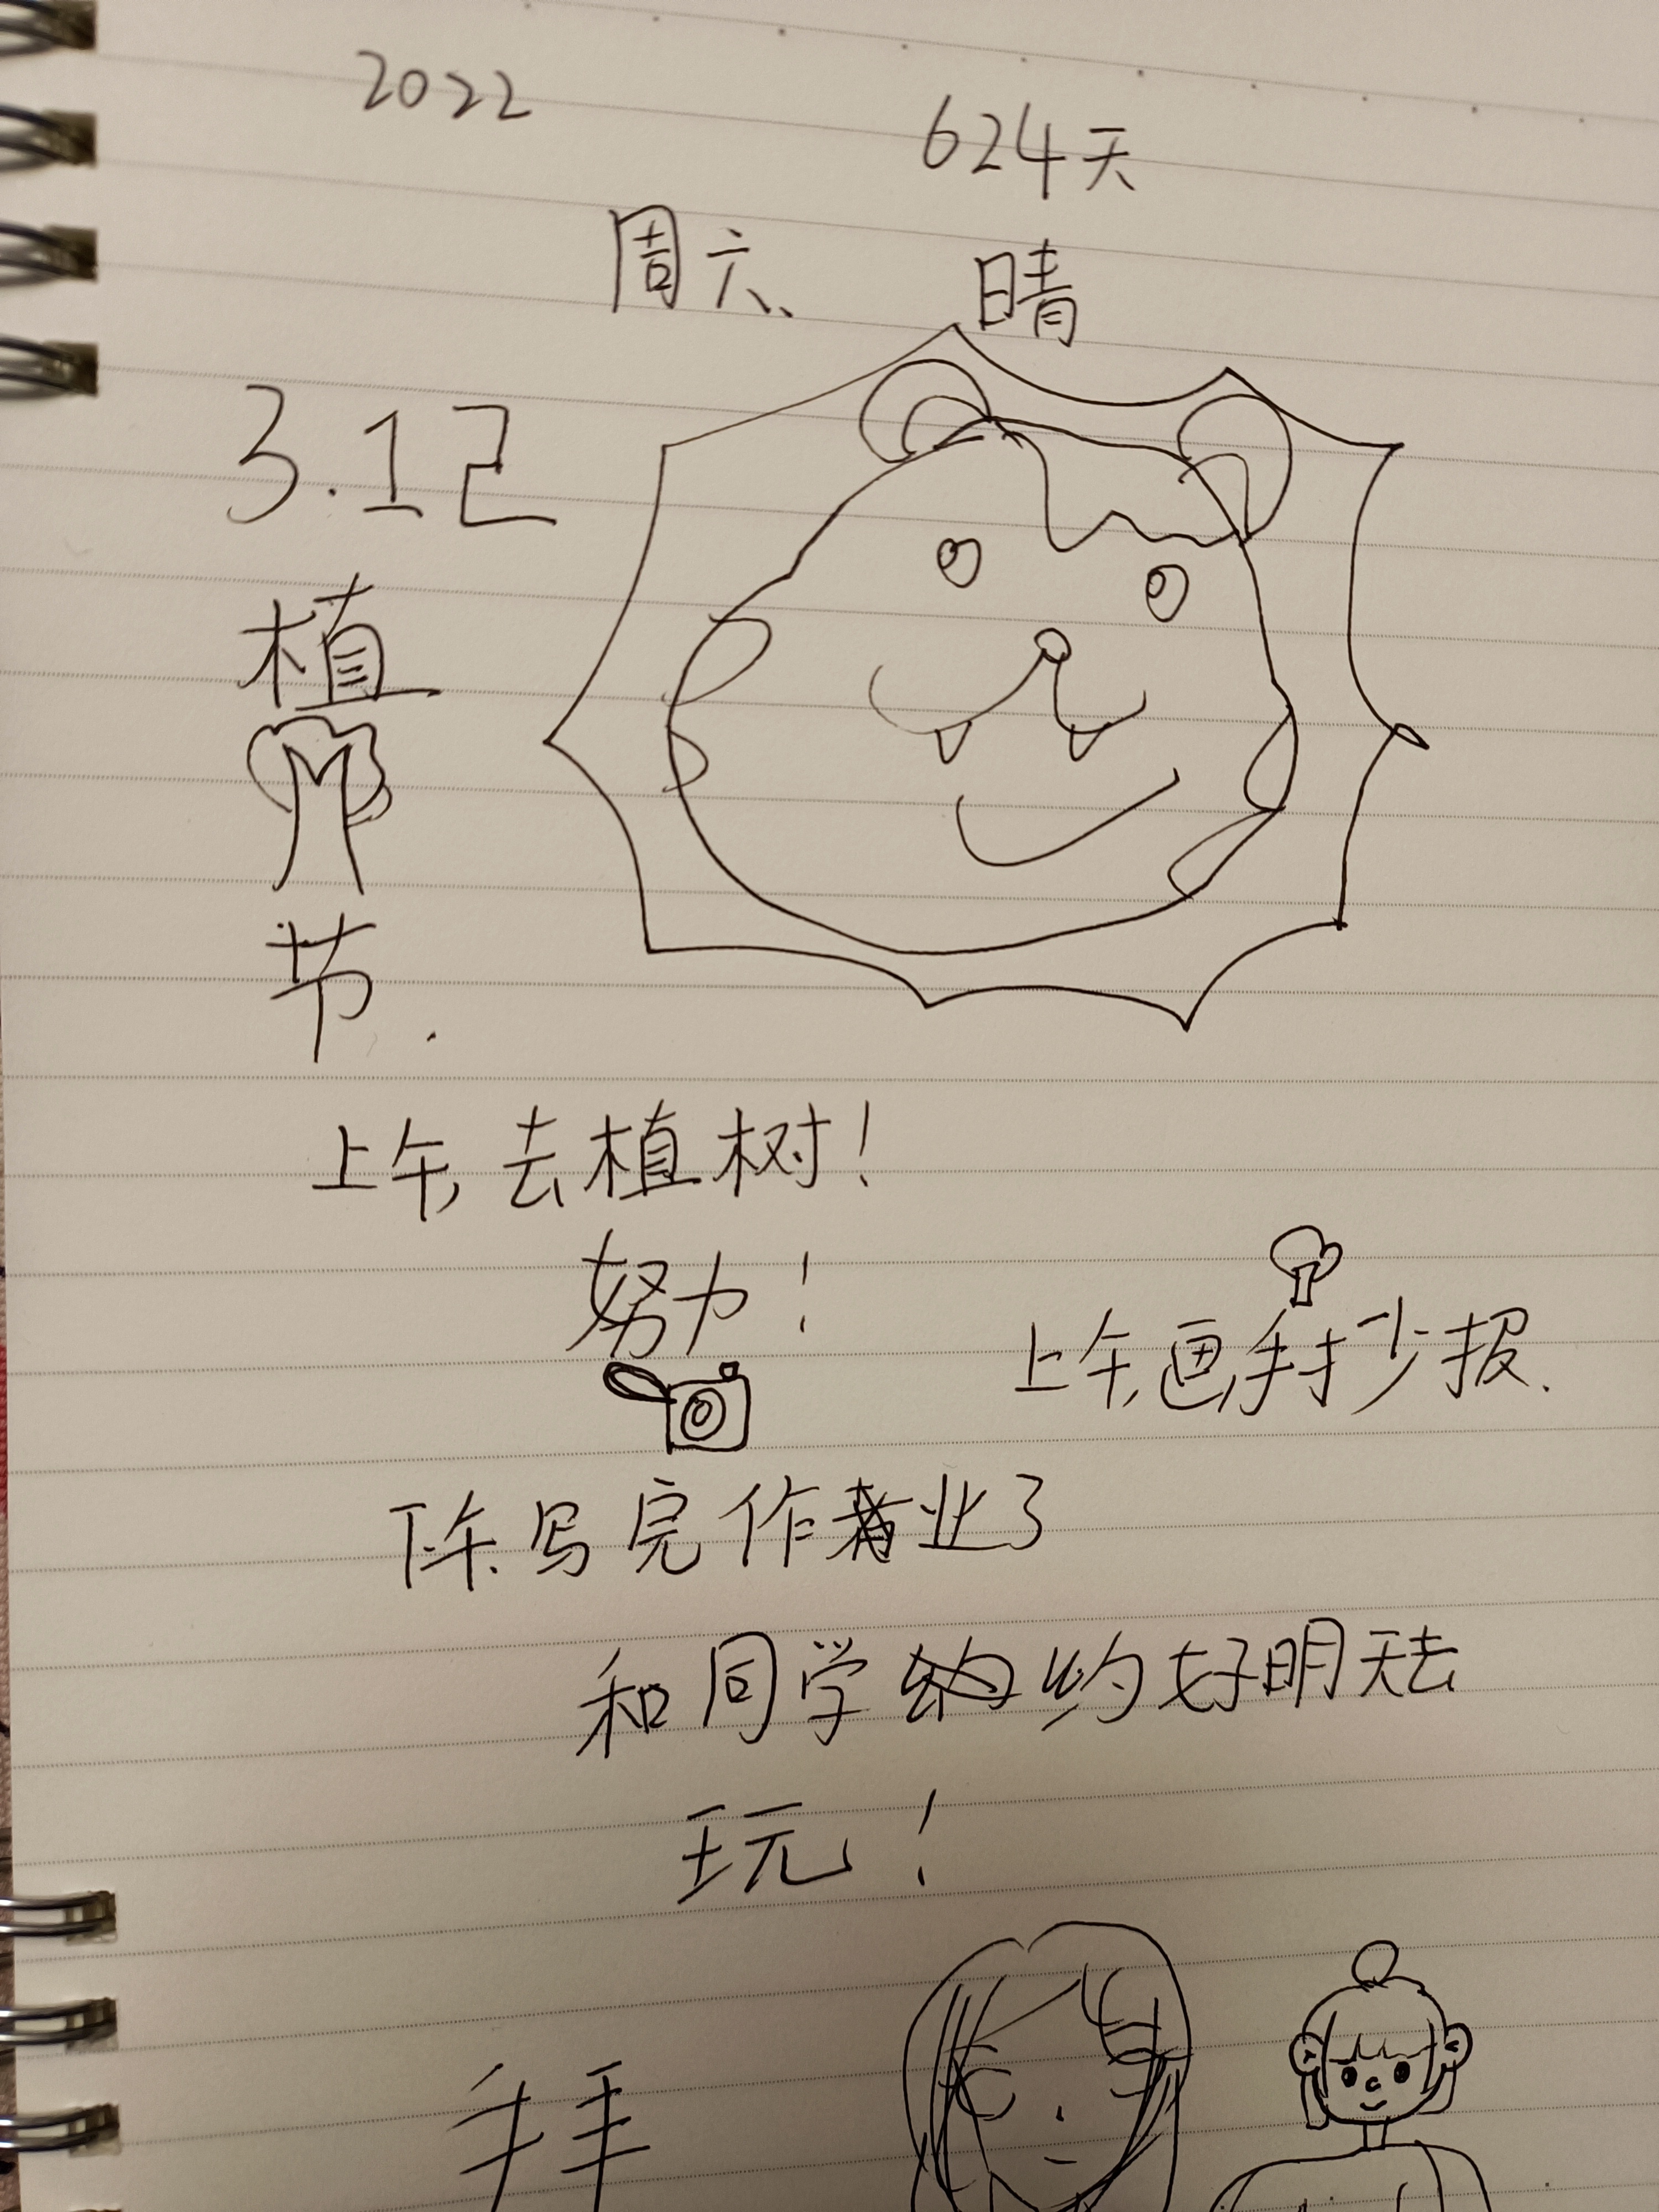 2022
624天
周六、
晴
3.12
植
节.
上午,去植树!
努力!
上午,画手抄报.
下午.写完作业了
和同学约好明天去
玩!
拜